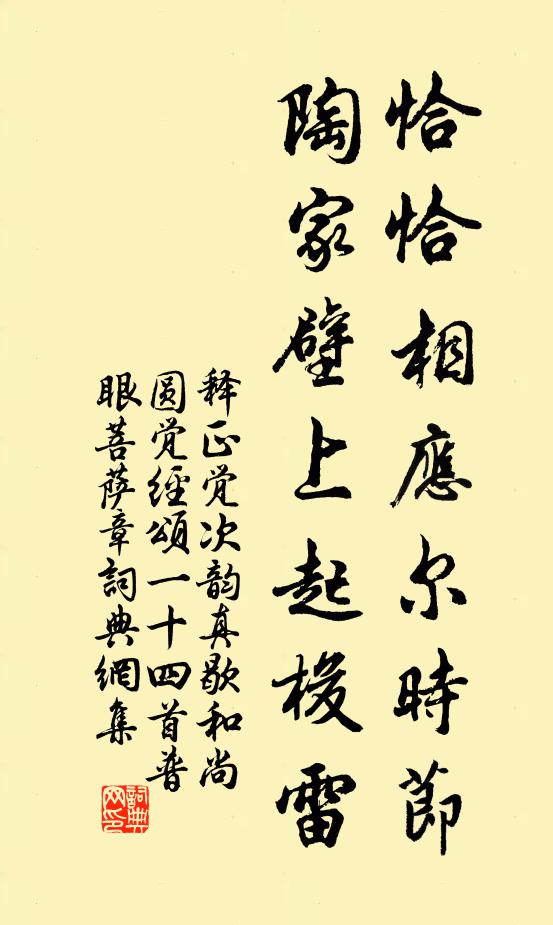 恰恰相應尔時節
陶家壁上起梭雷
释正觉次韵真歇和尚
圆觉經頌一十四首普
眼菩萨章詞典網集
詞典
网印